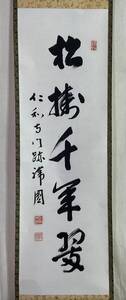 松樹千年翠
仁和寺門跡禅國